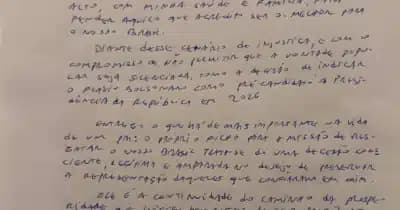 ALTO, COM MINHA SAÚDE E FAMÍLIA, PARA
DEFENDER AQUILO QUE ACREDITO SER O MELHOR PARA
O NOSSO BRASIL.
DIANTE DESSE CENÁRIO DE INJUSTIÇA, E COM O
COMPROMISSO DE NÃO PERMITIR QUE A VONTADE POPU-
LAR SEJA SILENCIADA, TOMO A DECISÃO DE INDICAR
O FLÁVIO BOLSONARO COMO PRÉ-CANDIDATO À PRESI-
DÊNCIA DA REPÚBLICA EM 2026
ENTREGO O QUE HÁ DE MAIS IMPORTANTE NA VIDA
DE UM PAI: O PRÓPRIO FILHO PARA A MISSÃO DE RES-
GATAR O NOSSO BRASIL. TRATA-SE DE UMA DECISÃO CONS-
CIENTE, LEGÍTIMA E AMPARADA NO DESEJO DE PRESERVAR
A REPRESENTAÇÃO DAQUELES QUE CONFIARAM EM MIM.
ELE É A CONTINUIDADE DO CAMINHO DA PROSPE-
RIDADE